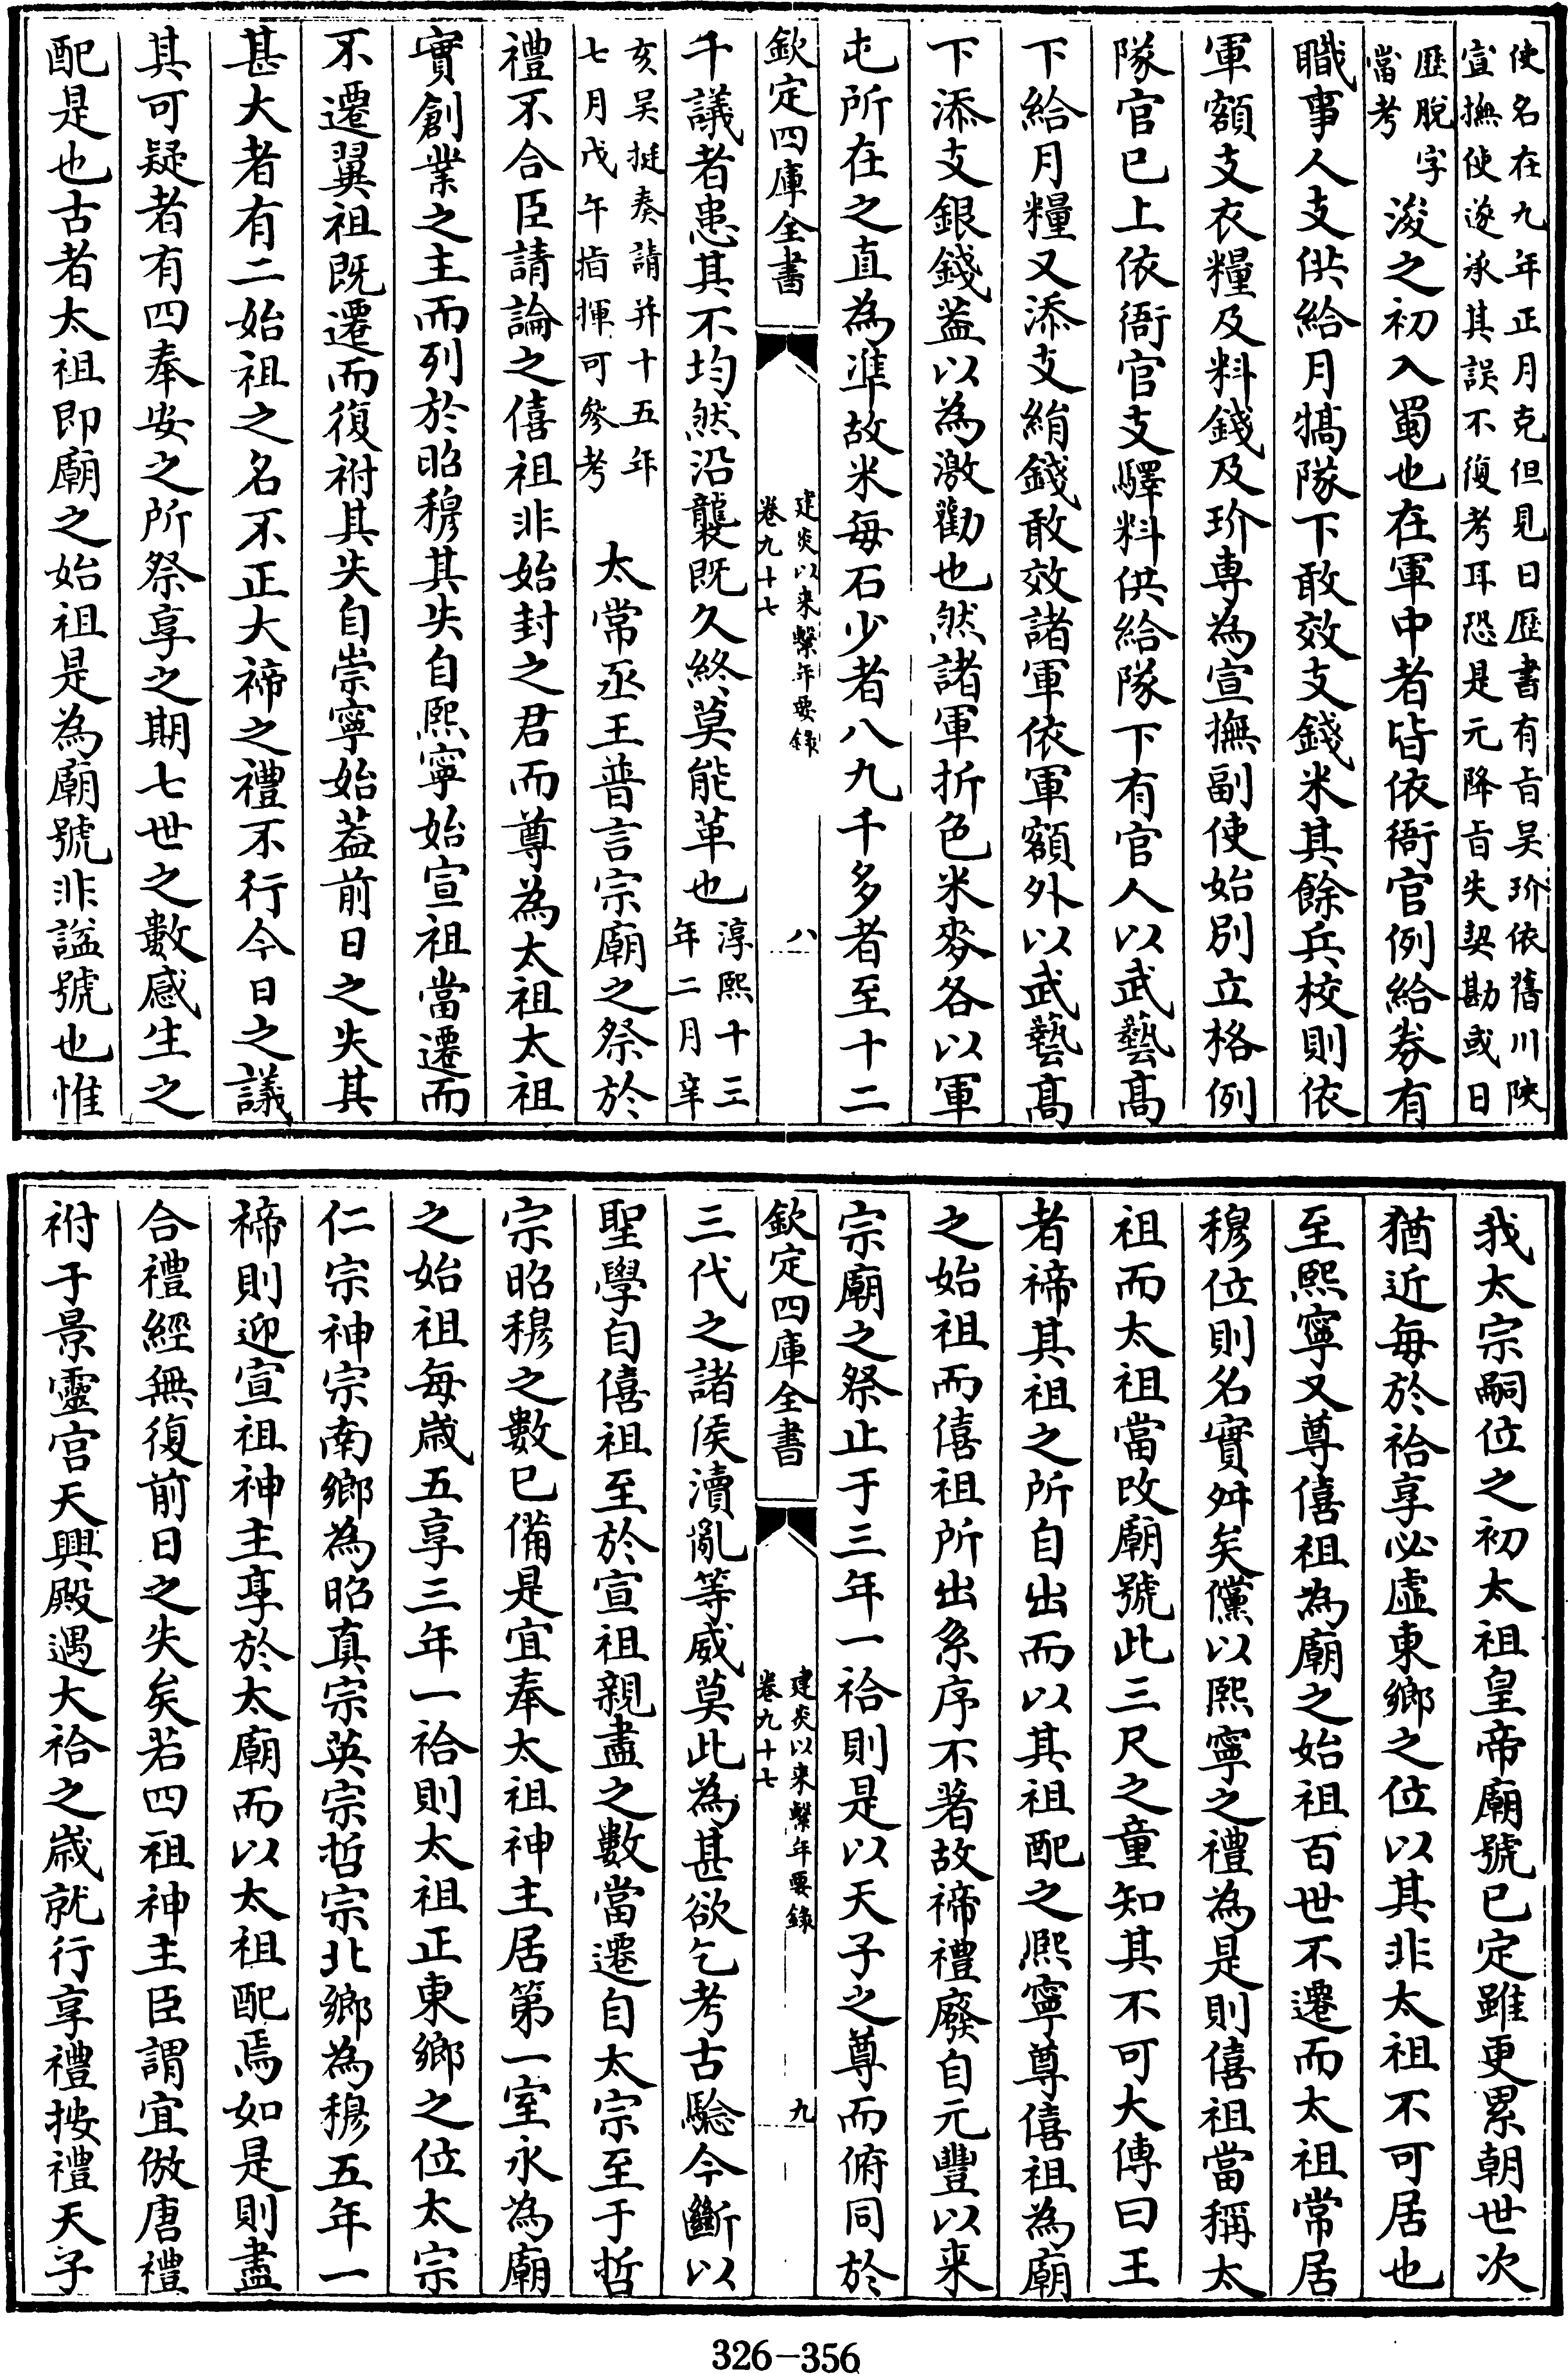 使名在九年正月克但見日歷書有旨吴玠依舊川陜
宣撫使遂承其誤不復考耳恐是元降旨失契勘或日
歷脫字
當考
浚之初入蜀也在軍中者皆依衙官例給劵有
職事人支供給月犒隊下敢效支錢米其餘兵校則依
軍額支衣糧及料錢及玠專為宣撫副使始别立格例
隊官已上依衙官支驛料供給隊下有官人以武藝髙
下給月糧又添支絹錢敢效諸軍依軍額外以武藝髙
下添支銀錢葢以為激勸也然諸軍折色米麥各以軍
屯所在之直為準故米每石少者八九千多者至十二
欽定四庫全書
建炎以来繫年要錄
卷九十七
八
千議者患其不均然沿襲既久終莫能革也
淳熙十三
年二月辛
亥吴挺奏請并十五年
七月戊午指揮可參考
太常丞王普言宗廟之祭於
禮不合臣請論之僖祖非始封之君而尊為太祖太祖
實創業之主而列於昭穆其失自熙寧始宣祖當遷而
不遷翼祖既遷而復祔其失自崇寧始葢前日之失其
甚大者有二始祖之名不正大禘之禮不行今日之議
其可疑者有四奉安之所祭享之期七世之數感生之
配是也古者太祖即廟之始祖是為廟號非諡號也惟
我太宗嗣位之初太祖皇帝廟號已定雖更累朝世次
猶近每於祫享必虚東鄉之位以其非太祖不可居也
至熙寧又尊僖祖為廟之始祖百世不遷而太祖常居
穆位則名實舛矣儻以熙寧之禮為是則僖祖當稱太
祖而太祖當改廟號此三尺之童知其不可大傳曰王
者禘其祖之所自出而以其祖配之熙寧尊僖祖為廟
之始祖而僖祖所出系序不著故禘禮廢自元豐以来
宗廟之祭止于三年一祫則是以天子之尊而俯同於
欽定四庫全書
建炎以来繫年要錄
卷九十七
九
三代之諸侯瀆亂等威莫此為甚欲乞考古驗今斷以
聖學自僖祖至於宣祖親盡之數當遷自太宗至于哲
宗昭穆之數已備是宜奉太祖神主居第一室永為廟
之始祖每歲五享三年一祫則太祖正東鄉之位太宗
仁宗神宗南鄉為昭真宗英宗哲宗北鄉為穆五年一
禘則迎宣祖神主享於太廟而以太祖配焉如是則盡
合禮經無復前日之失矣若四祖神主臣謂宜倣唐禮
祔于景靈宫天興殿遇大祫之歲就行享禮按禮天子
326-356